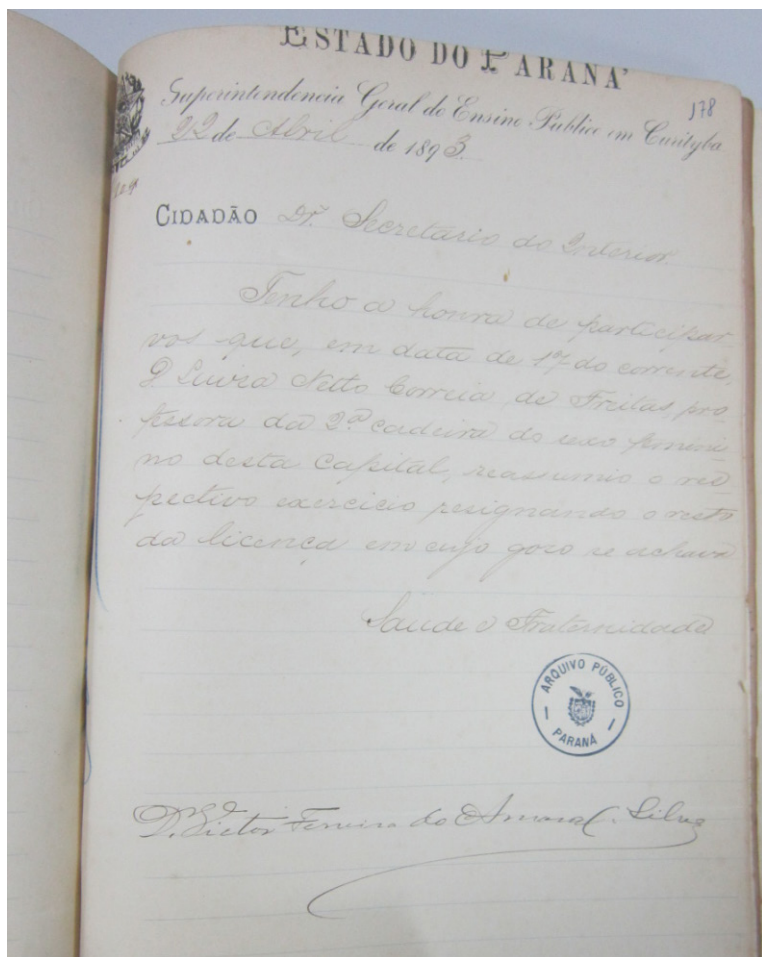 ESTADO DO PARANÁ
178
Superintendencia Geral do Ensino Publico em Curityba
22 de Abril de 1893
CIDADÃO Dr. Secretario do Interior
Tenho a honra de participar
vos que, em data de 17 do corrente,
D Luiza Netto Correia de Freitas, pro
fessora da 2ª cadeira do sexo femini
no desta Capital, reassumio o res
pectivo exercicio resignando o resto
da licença em cujo goso se achava
Saude e Fraternidade
ARQUIVO PÚBLICO
PARANÁ
Dr. Victor Ferreira do Amaral e Silva